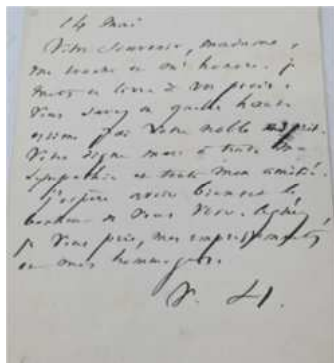 14 Mai
Votre souvenir, madame,
me touche et m'honore. je
mets ce livre à vos pieds.
Vous savez en quelle haute
estime j'ai votre noble esprit.
Votre digne mari a toute ma
sympathie et toute mon amitié.
J'espère avoir bientôt le
bonheur de vous voir. Agréez,
je vous prie, mes empressements
et mes hommages.
V. H.